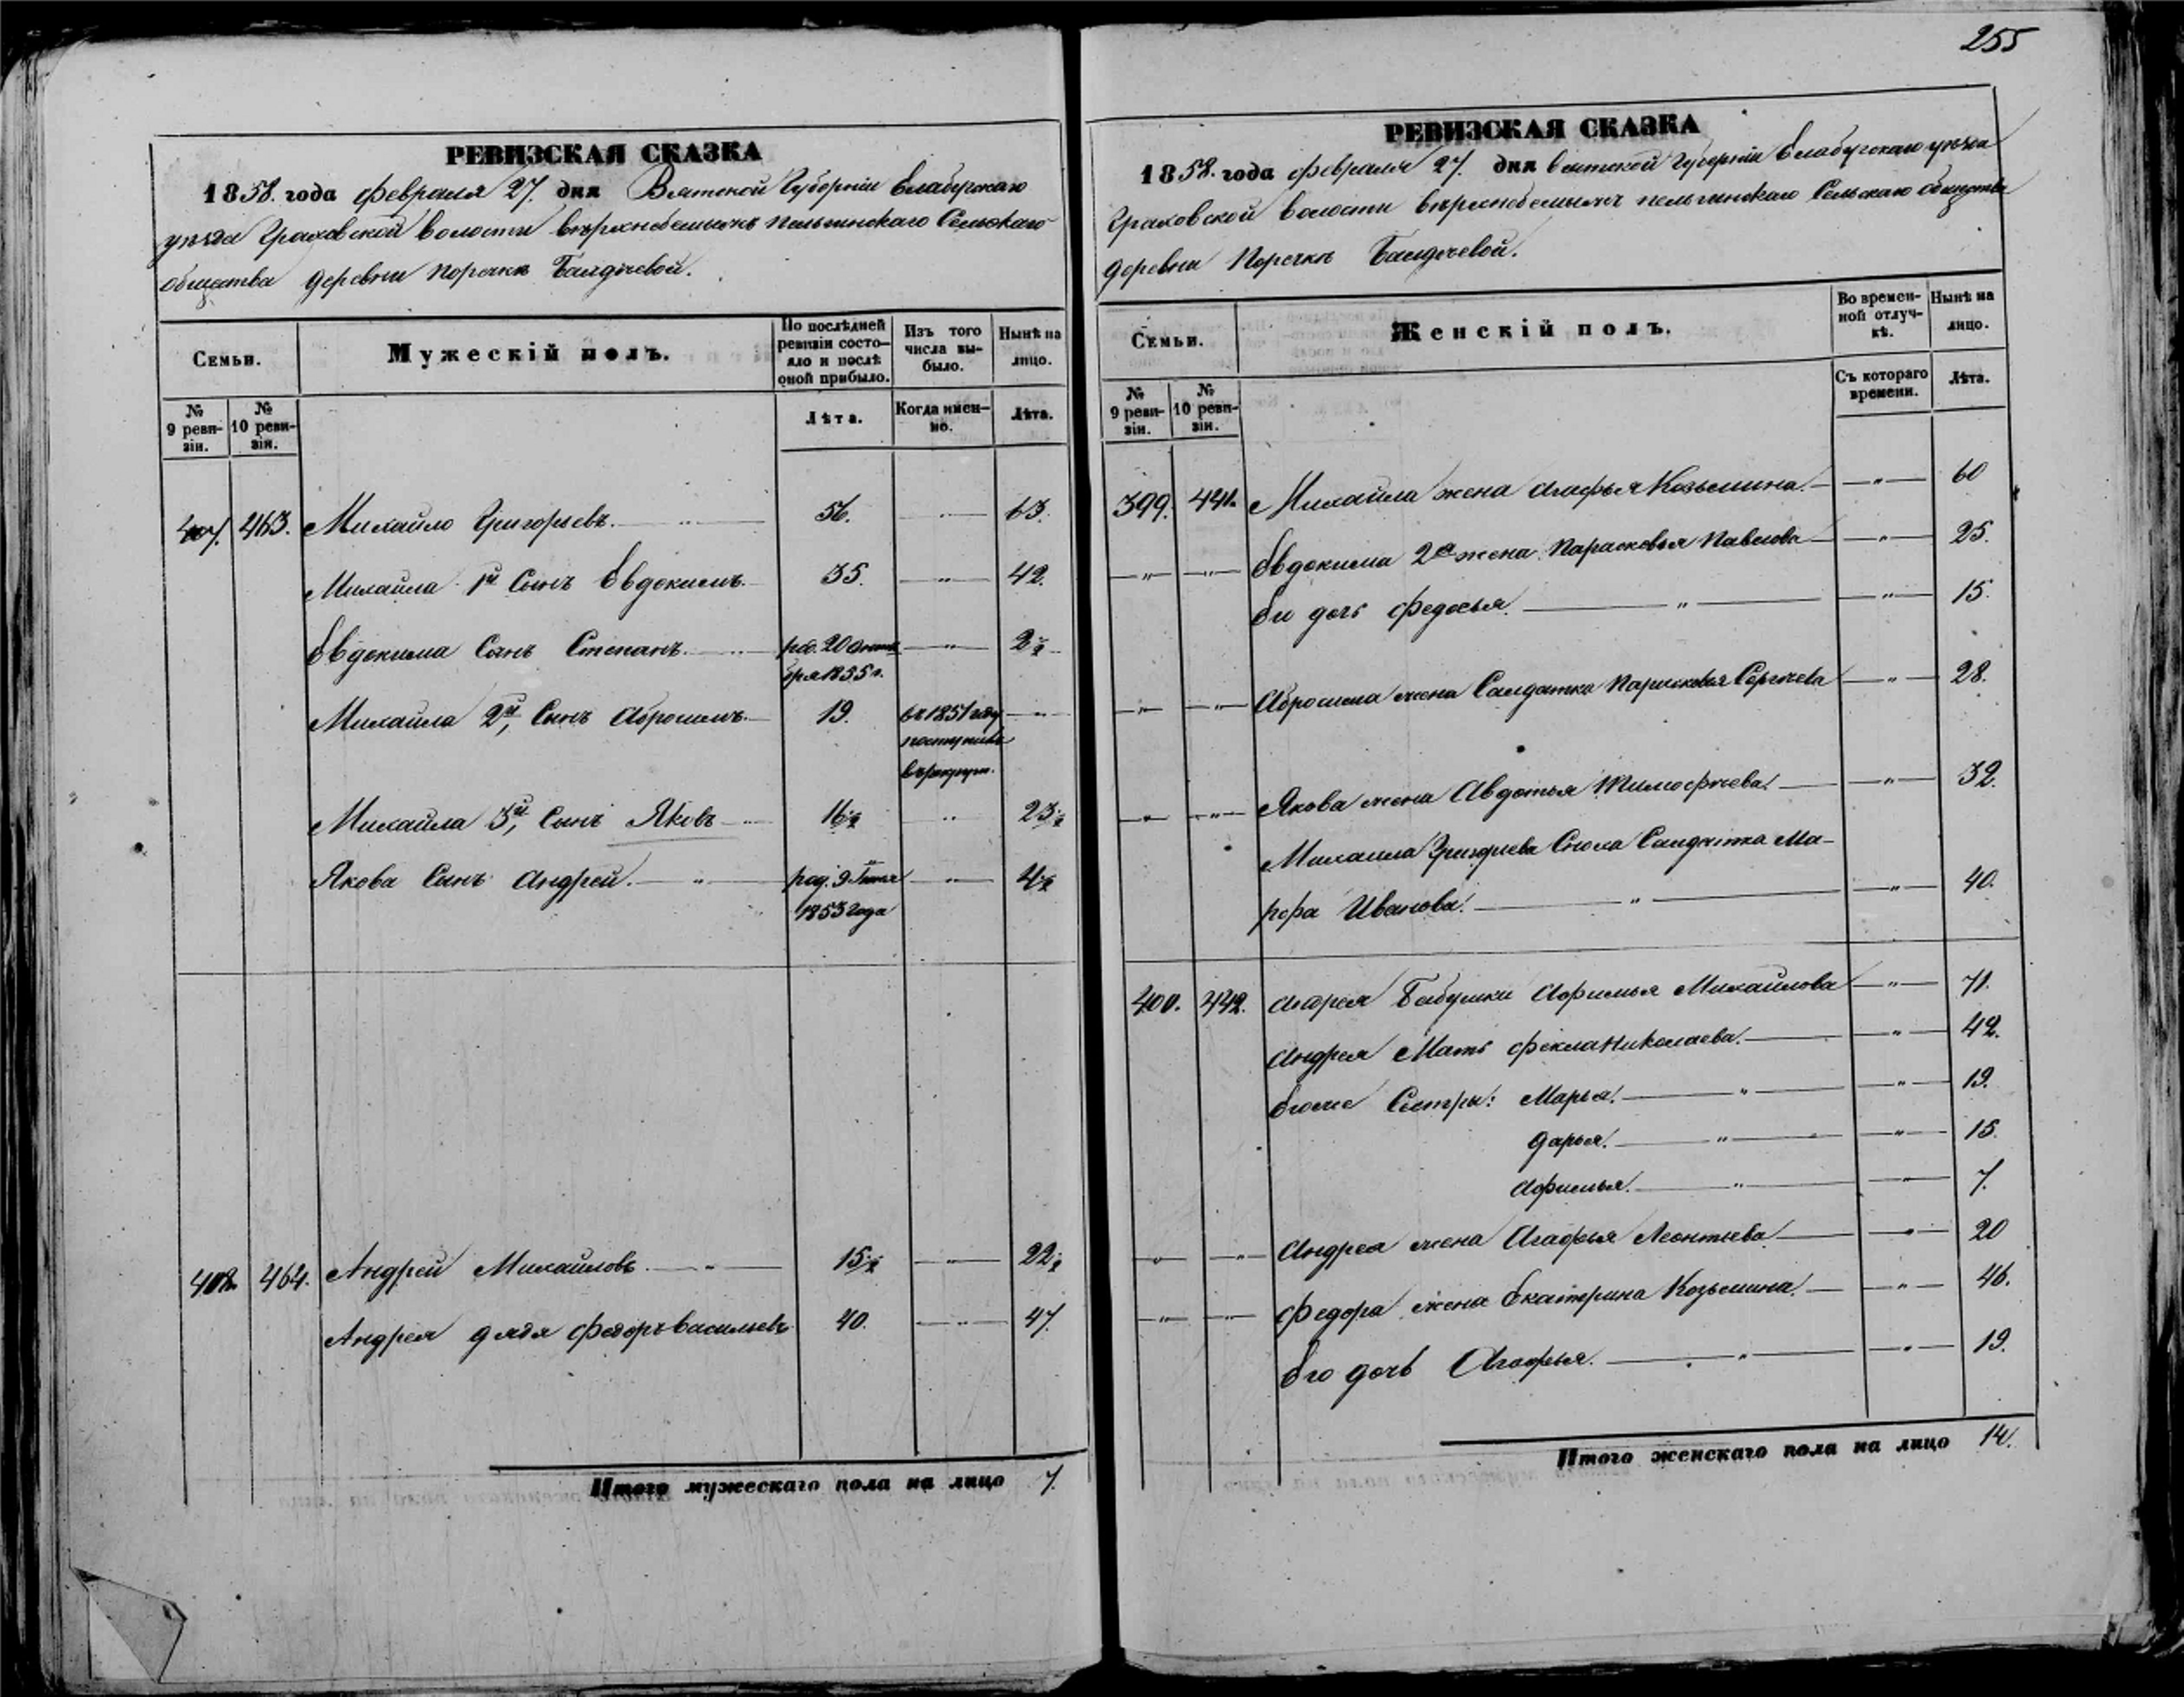 255
РЕВИЗСКАЯ СКАЗКА
1858. года февраля 27. дня Вятской Губерніи Елабугскаго
уѣзда Граховской волости
общества деревни Поречки
Семьи.
Мужескій полъ.
По послѣдней ревизіи состояло и послѣ оной прибыло.
Изъ того числа выбыло.
Нынѣ на лицо.
№ 9 ревизіи.
№ 10 ревизіи.
Лѣта.
Когда именно.
Лѣта.
407. 463. Михайло Григорьевъ. — " — 56. — " — 63.
Михайла 1й Сынъ Евдокимъ. — 35. — " — 42.
Евдокима Сынъ Степанъ. — " — 20 2½
бря 1855 г.
Михайла 2й, Сынъ Абросимъ. — 19. въ 1851 году — " —
поступилъ
въ рекруты.
Михайла 3й, Сынъ Яковъ — " — 16½ " 23½
Якова Сынъ Андрей. — " — род. 9 — " — 4½
1853 года
408. 464. Андрей Михайловъ. — " — 15½ — " — 22½
Андрея дядя Федоръ Васильевъ 40. — " — 47.
Итого мужескаго пола на лицо 7.
РЕВИЗСКАЯ СКАЗКА
1858. года февраля 27. дня Вятской Губерніи Елабугскаго уѣзда
Граховской волости Сельскаго общества
деревни Поречки
Семьи.
Женскій полъ.
Во временной отлучкѣ.
Нынѣ на лицо.
№ 9 ревизіи.
№ 10 ревизіи.
Съ котораго времени.
Лѣта.
399. 441. Михайла жена Агафья Козьмина. — " — 60
— " — — " — Евдокима 2я жена Парасковья Павлова — " — 25.
Ея дочь Федосья. — " — — " — 15.
— " — — " — Абросима жена Салдатка Парасковья Сергѣева — " — 28.
— " — — " — Якова жена Авдотья Тимофѣева. — " — 32.
Михаила Григорьева Сноха Салдатка Ма-
рфа Иванова. — " — — " — 40.
400. 442. Андрея Бабушка Афимья Михайлова — " — 71.
Андрея Мать Фекла Николаева. — " — 42.
Егоже Сестры: Марья. — " — — " — 19.
Дарья. — " — — " — 15.
Афимья. — " — — " — 7.
— " — — " — Андрея жена Агафья Леонтьева — " — 20
— " — — " — Федора жена Екатерина Козьмина. — " — 46.
Его дочь Агафья. — " — — " — 19.
Итого женскаго пола на лицо 14.